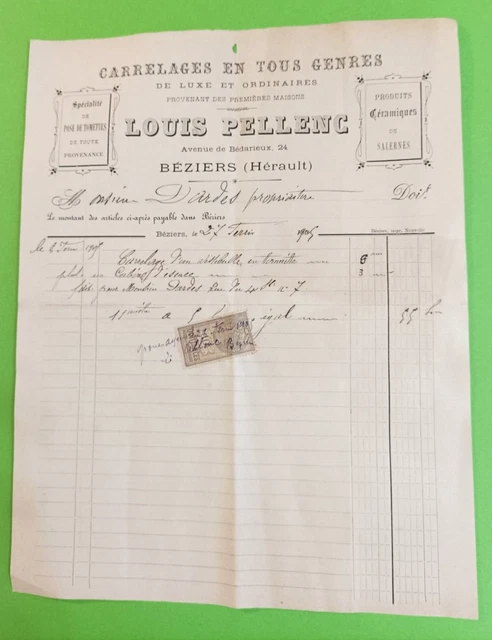 CARRELAGES EN TOUS GENRES
DE LUXE ET ORDINAIRES
PROVENANT DES PREMIÈRES MAISONS
Spécialité
DE
POSE DE TOMETTES
DE TOUTE
PROVENANCE
LOUIS PELLENC
PRODUITS
Céramiques
DE
SALERNES
Avenue de Bédarieux, 24
BÉZIERS (Hérault)
Monsieur Dardés propriétaire Doit
Le montant des articles ci-après payable dans Béziers
Béziers, le 27 1905
le 6 1905 Carrelage d'un en 8 m
Cabinet d'aisance 3 m
pour Monsieur Dardés Rue du 4 7bre n° 7
11 mètres à 5 égal 55